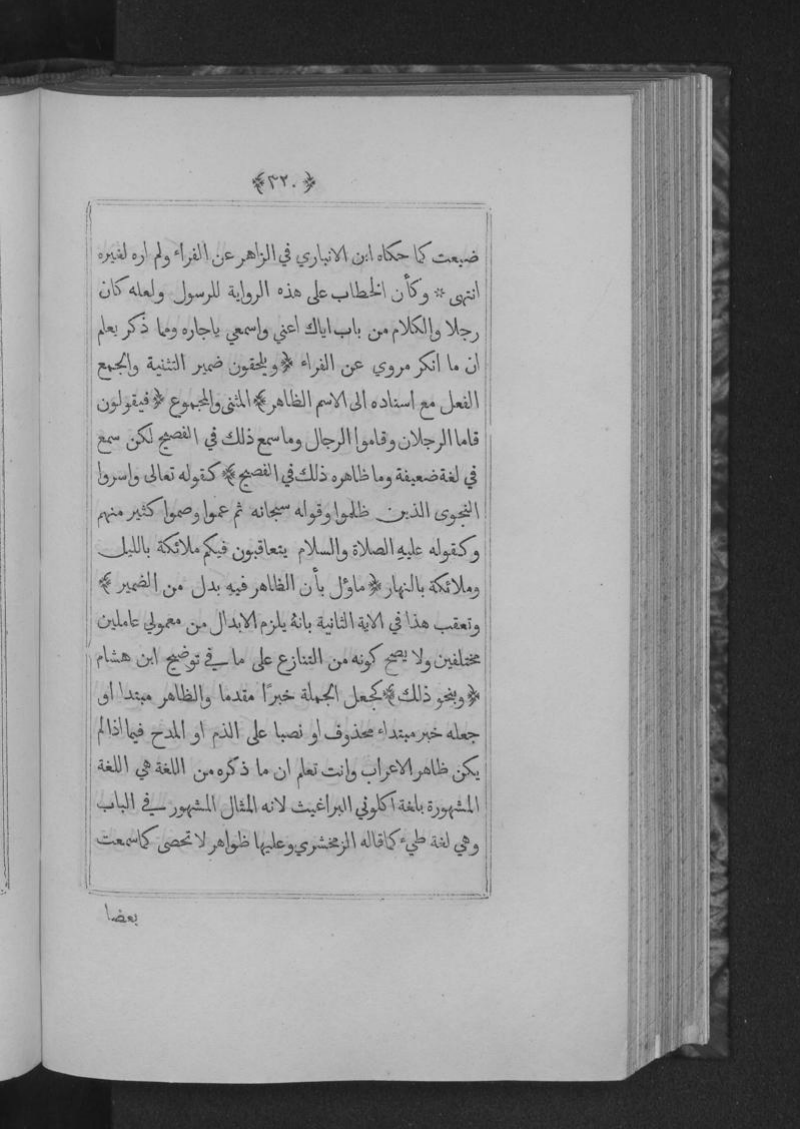 ﴿٣٢٠﴾
ضيعت كما حكاه ابن الانباري في الزاهر عن الفراء ولم اره لغيره
انتهى * وكأن الخطاب على هذه الرواية للرسول ولعله كان
رجلا والكلام من باب اياك اعني واسمعي ياجاره ومما ذكر يعلم
ان ما انكر مروي عن الفراء ﴿ويلحقون ضمير التثنية والجمع
الفعل مع اسناده الى الاسم الظاهر﴾ المثنى والمجموع ﴿فيقولون
قاما الرجلان وقاموا الرجال وما سمع ذلك في الفصيح لكن سمع
في لغة ضعيفة وما ظاهره ذلك في الفصيح﴾ كقوله تعالى واسروا
النجوى الذين ظلموا وقوله سبحانه ثم عموا وصموا كثير منهم
وكقوله عليه الصلاة والسلام يتعاقبون فيكم ملائكة بالليل
وملائكة بالنهار ﴿ماؤل بأن الظاهر فيه بدل من الضمير﴾
وتعقب هذا في الاية الثانية بانهُ يلزم الابدال من معمولي عاملين
مختلفين ولا يصح كونه من التنازع على ما في توضيح ابن هشام
﴿وبنحو ذلك﴾ كجعل الجملة خبرًا مقدما والظاهر مبتدا او
جعله خبر مبتداء محذوف او نصبا على الذم او المدح فيما اذا لم
يكن ظاهر الاعراب وانت تعلم ان ما ذكره من اللغة هي اللغة
المشهورة بلغة اكلوني البراغيث لانه المثال المشهور في الباب
وهي لغة طيء كما قاله الزمخشري وعليها ظواهر لا تحصى كما سمعت
بعضا